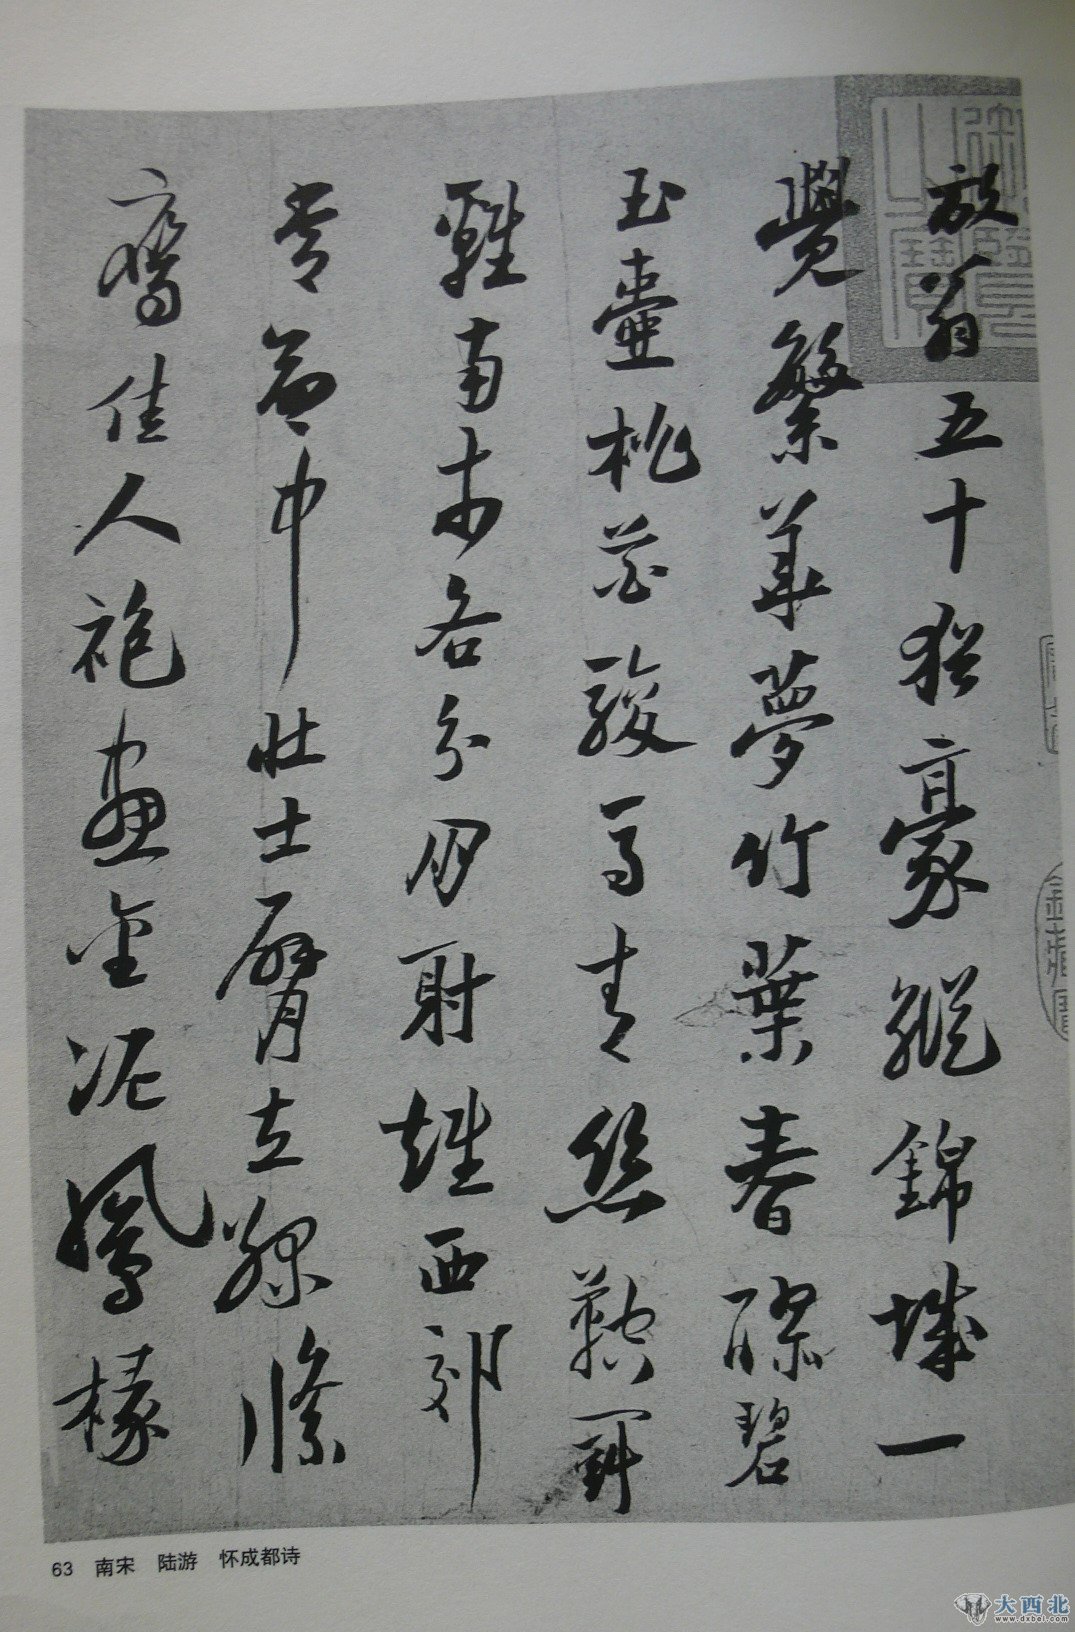 放翁五十猶豪縱錦城一
覺繁華夢竹葉春醪碧
玉壺桃花駿馬青絲鞚鬥
雞南市各分朋射雉西郊
常命中壯士臂立綠絛
鷹佳人袍畫金泥鳳椽
63 南宋 陆游 怀成都诗
大西北
www.dxbei.com